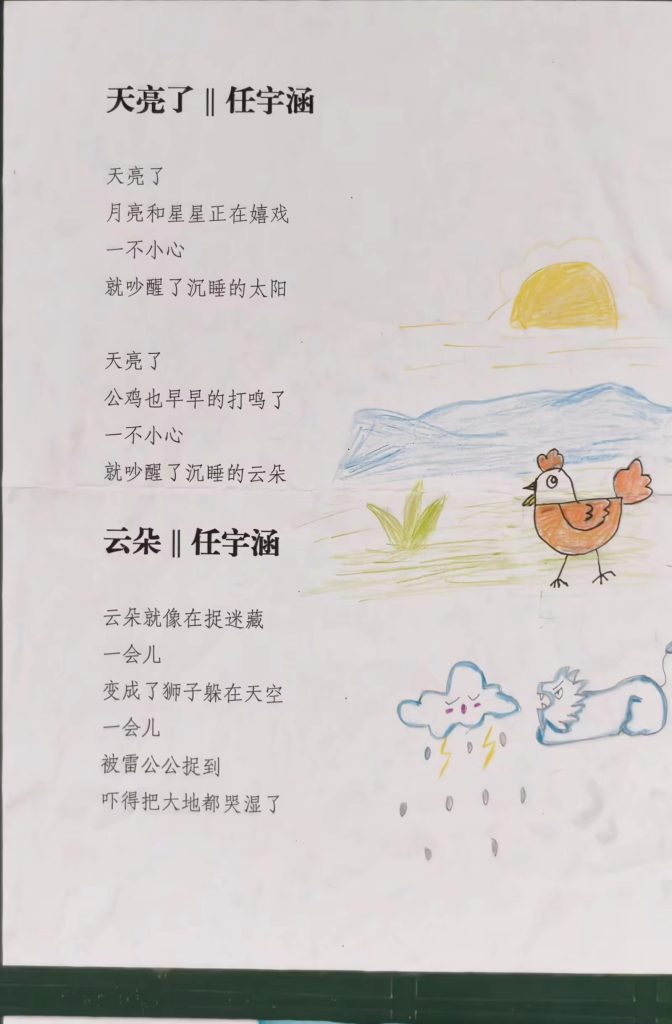 天亮了 || 任宇涵
天亮了
月亮和星星正在嬉戏
一不小心
就吵醒了沉睡的太阳
天亮了
公鸡也早早的打鸣了
一不小心
就吵醒了沉睡的云朵
云朵 || 任宇涵
云朵就像在捉迷藏
一会儿
变成了狮子躲在天空
一会儿
被雷公公捉到
吓得把大地都哭湿了